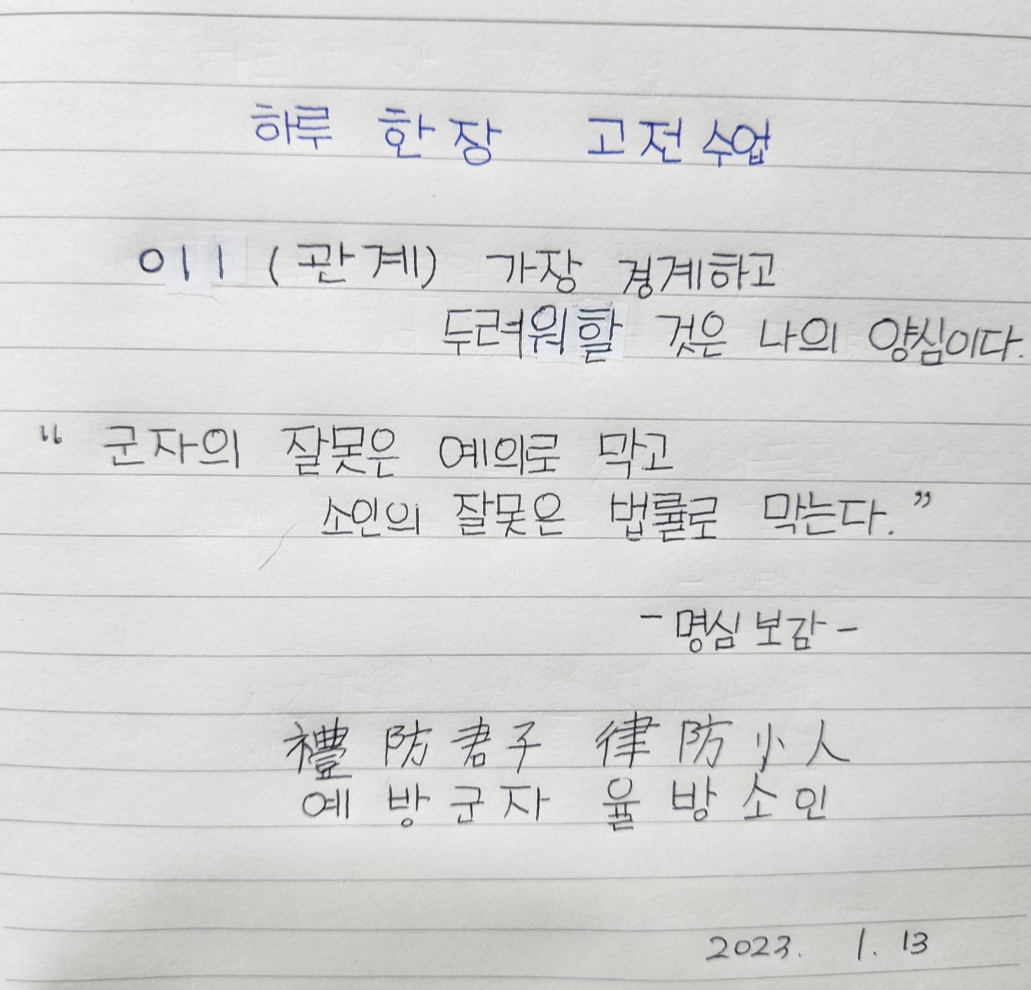 하루 한 장 고전 수업
011 (관계) 가장 경계하고
두려워할 것은 나의 양심이다.
“ 군자의 잘못은 예의로 막고
소인의 잘못은 법률로 막는다.”
- 명심보감 -
禮防君子 律防小人
예방군자 율방소인
2023. 1. 13